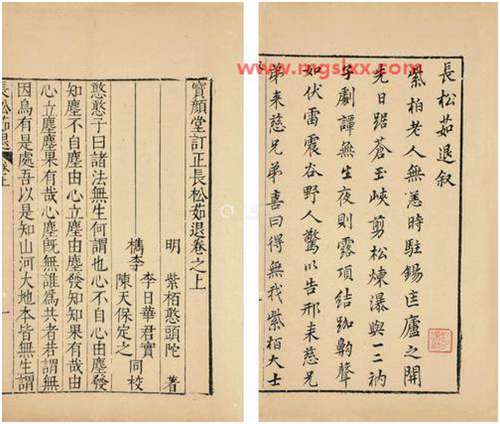 www.mgslxx.com
長松茹退叙
紫柏老人無恙時駐錫匡廬之開
先日踞蒼玉峽剪松煉瀑與一二衲
子劇譚無生夜則露頂結跏齁聲
如伏雷震谷野人驚以告邢来慈兄
弟来慈兄弟喜曰得無我紫柏大士
寶顏堂訂正長松茹退卷之上
明 紫栢憨頭陀 著
檇李 李日華君實
陳天保定之 同校
憨憨子曰諸法無生何謂也心不自心由塵發
知塵不自塵由心立塵由塵發知知果有哉由
心立塵塵果有哉心塵既無誰為共者若謂無
因烏有是處吾以是知山河大地本皆無生謂
長松茹退